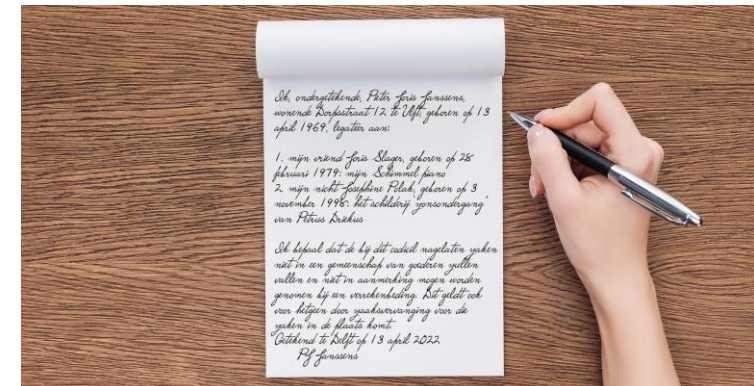 Ik, ondergetekende, Pieter Joris Janssens,
wonende Dorpsstraat 12, te Ulft, geboren op 13
april 1969, legateer aan:
1. mijn vriend Joris Slager, geboren op 28
februari 1979: mijn Schimmel piano
2. mijn nicht Josephine Polak, geboren op 3
november 1998: het schilderij 'zonsondergang'
van Petrus Driekus
Ik bepaal dat de bij dit codicil nagelaten zaken
niet in een gemeenschap van goederen zullen
vallen en niet in aanmerking mogen worden
genomen bij een verrekenbeding. Dit geldt ook
voor hetgeen door zaaksvervanging voor die
zaken in de plaats komt.
Getekend te Delft op 13 april 2022
PJ Janssens